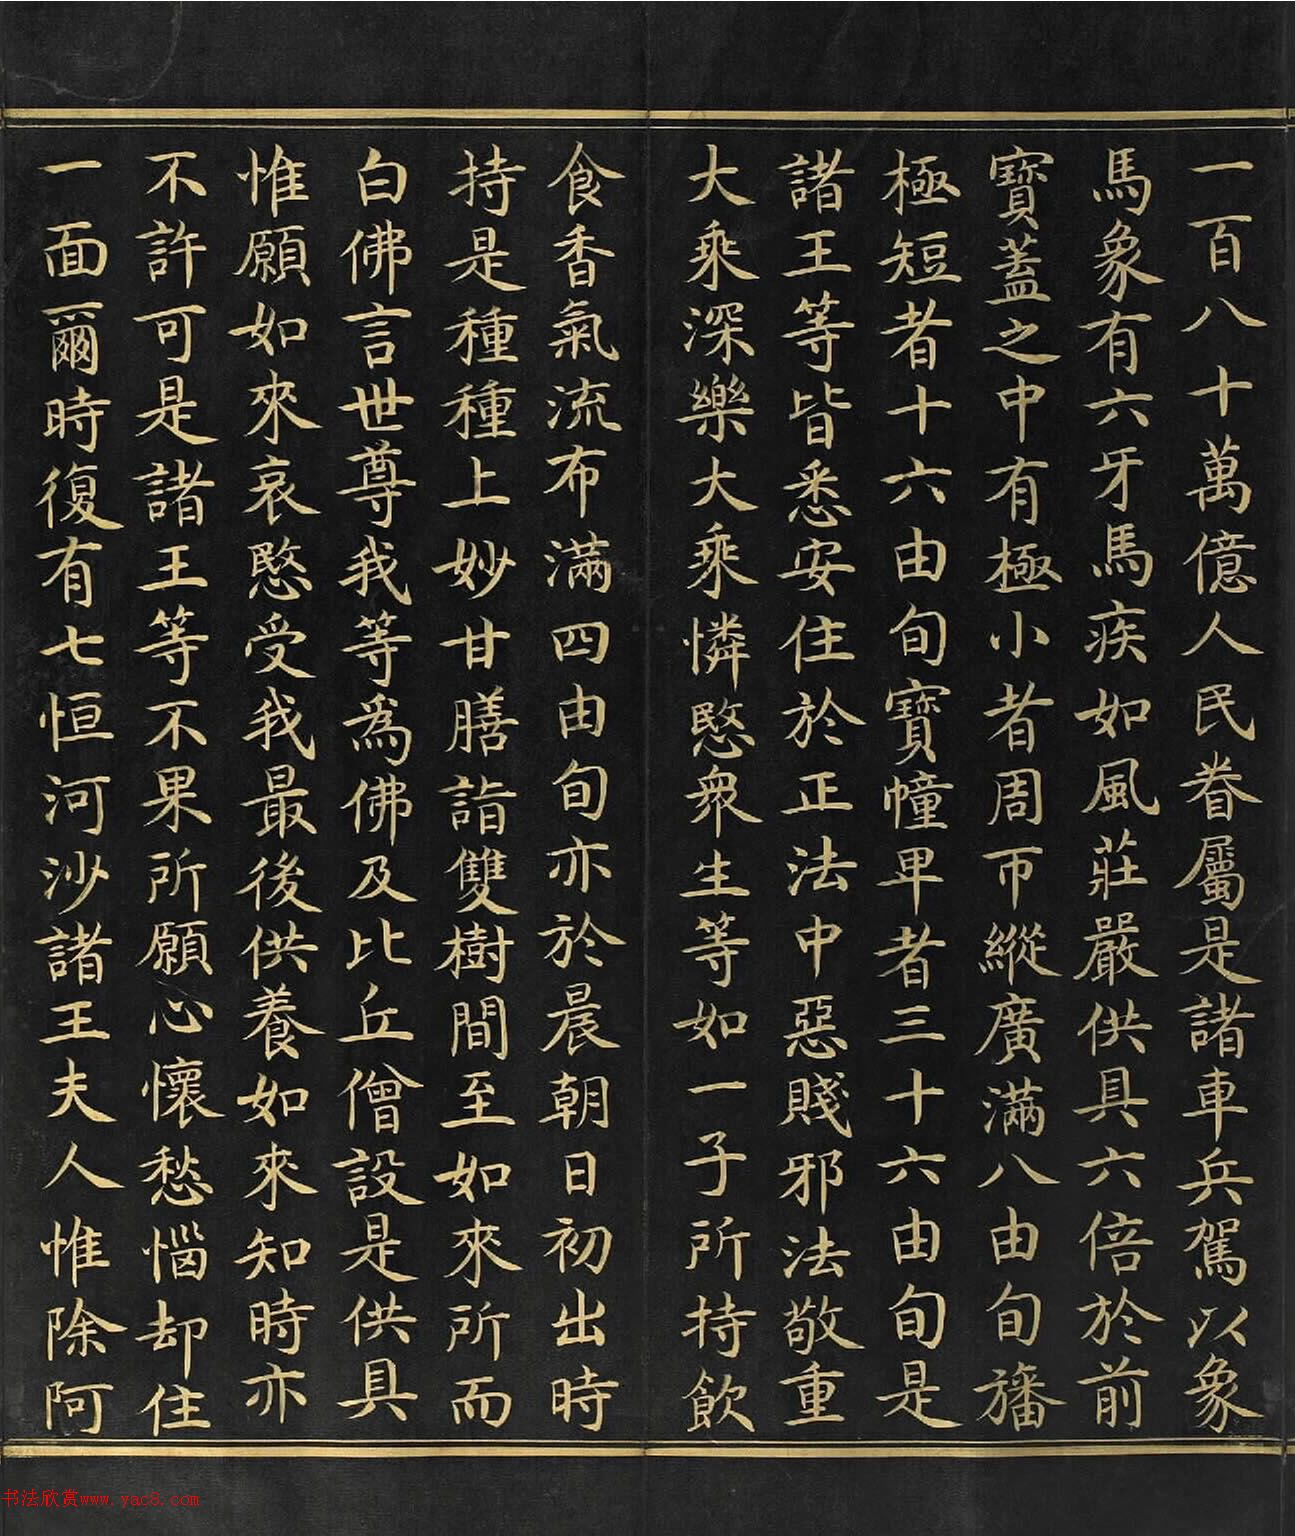 一百八十萬億人民眷屬是諸車兵駕以象
馬象有六牙馬疾如風莊嚴供具六倍於前
寶蓋之中有極小者周帀縱廣滿八由旬旛
極短者十六由旬寶幢卑者三十六由旬是
諸王等皆悉安住於正法中惡賤邪法敬重
大乘深樂大乘憐愍衆生等如一子所持飲
食香氣流布滿四由旬亦於晨朝日初出時
持是種種上妙甘膳詣雙樹間至如來所而
白佛言世尊我等為佛及比丘僧設是供具
惟願如來哀愍受我最後供養如來知時亦
不許可是諸王等不果所願心懷愁惱却住
一面爾時復有七恒河沙諸王夫人惟除阿
书法欣赏www.yac8.com